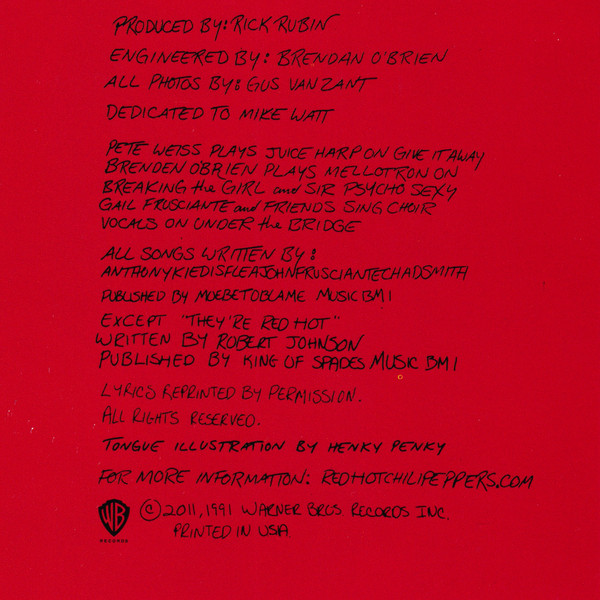 PRODUCED BY: RICK RUBIN
ENGINEERED BY: BRENDAN O'BRIEN
ALL PHOTOS BY: GUS VAN ZANT
DEDICATED TO MIKE WATT
PETE WEISS PLAYS JUICE HARP ON GIVE IT AWAY
BRENDEN O'BRIEN PLAYS MELLOTRON ON
BREAKING the GIRL and SIR PSYCHO SEXY
GAIL FRUSCIANTE and FRIENDS SING CHOIR
VOCALS ON UNDER the BRIDGE
ALL SONGS WRITTEN BY:
ANTHONYKIEDISFLEAJOHNFRUSCIANTECHADSMITH
PUBLISHED BY MOEBETOBLAME MUSIC BMI
EXCEPT "THEY'RE RED HOT"
WRITTEN BY ROBERT JOHNSON
PUBLISHED BY KING OF SPADES MUSIC BMI
LYRICS REPRINTED BY PERMISSION.
ALL RIGHTS RESERVED.
TONGUE ILLUSTRATION BY HENKY PENKY
FOR MORE INFORMATION: REDHOTCHILIPEPPERS.COM
WB RECORDS © 2011, 1991 WARNER BROS. RECORDS INC.
PRINTED IN USA